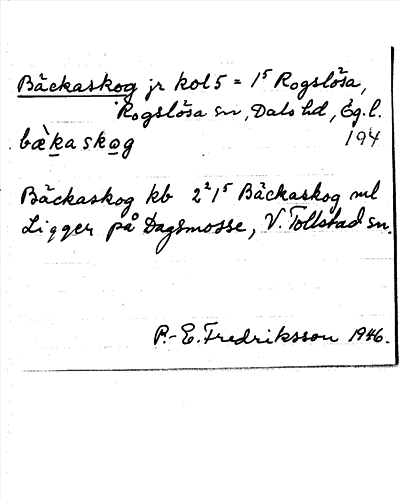 Bäckaskog jr kol 5 = 1⁵ Rogslösa,
Rogslösa sn, Dals hd, Ög. l.
bæ̀kaskog 194
Bäckaskog kb 2² 1⁵ Bäckaskog ml
Ligger på Dagsmosse, V. Tollstad sn.
P.-E. Fredriksson 1946.